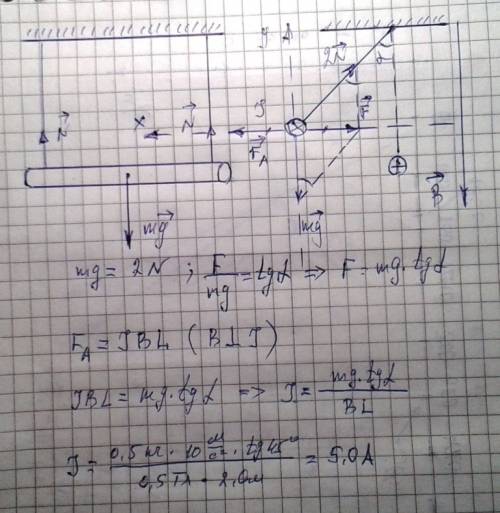 I A
2N⃗ α
N⃗ x N⃗ I F⃗
F⃗A
mg⃗ mg⃗ B⃗
mg = 2N ; F/mg = tgα => F = mg·tgα
FA = IBL (B⊥I)
IBL = mg·tgα => I = mg·tgα/BL
I = 0,5кг · 10 м/с² · tg45°/0,5Тл · 2,0м = 5,0А